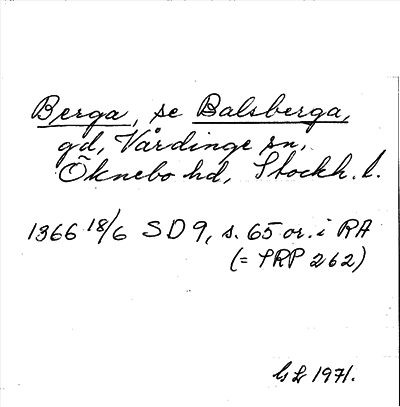 Berga, se Balsberga,
gd, Vårdinge sn,
Öknebo hd, Stockh. l.
1366 18/6 SD 9, s. 65 or. i RA
(= SRP 262)
GL 1971.